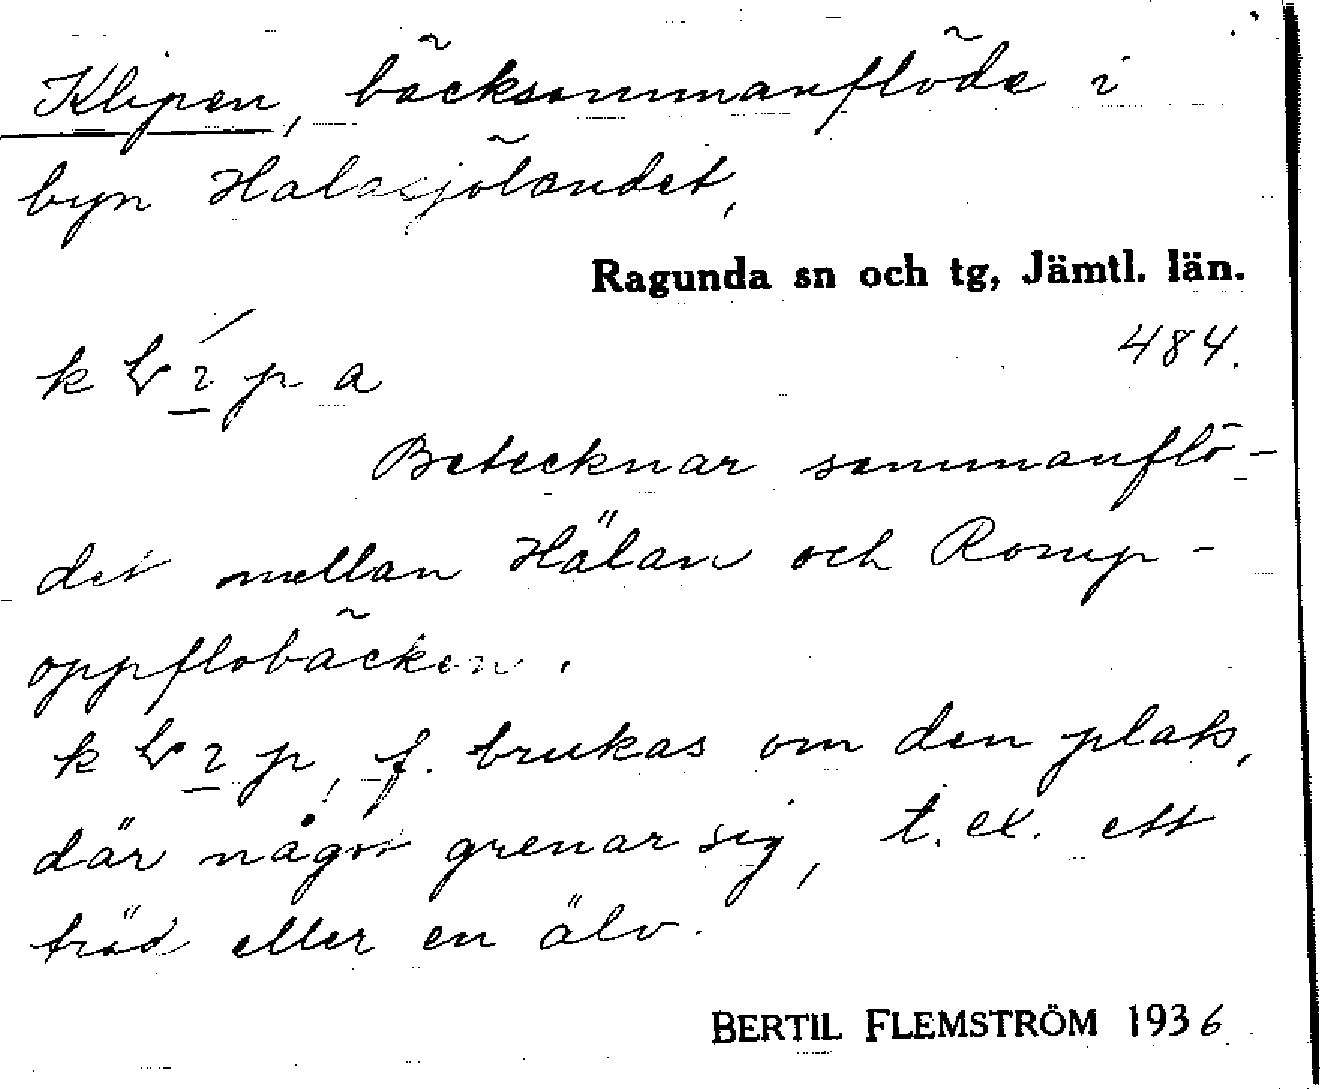 Klipen, bäcksammanflöde i
byn Halasjölandet,
Ragunda sn och tg, Jämtl. län.
484.
Betecknar sammanflö-
det mellan Hälan och Romp-
oppflobäcken.
f. brukas om den plats,
där något grenar sig, t. ex. ett
träd eller en älv.
BERTIL FLEMSTRÖM 1936